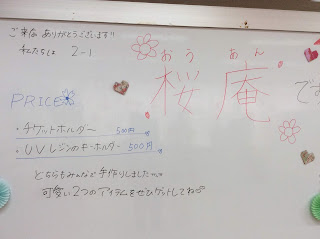 ご来店ありがとうございます!!
私たちは 2-1
おう あん
桜庵です
PRICE
・チケットホルダー 500円
・UVレジンのキーホルダー 500円
どちらもみんなで手作りしました
可愛い2つのアイテムをぜひゲットしてね